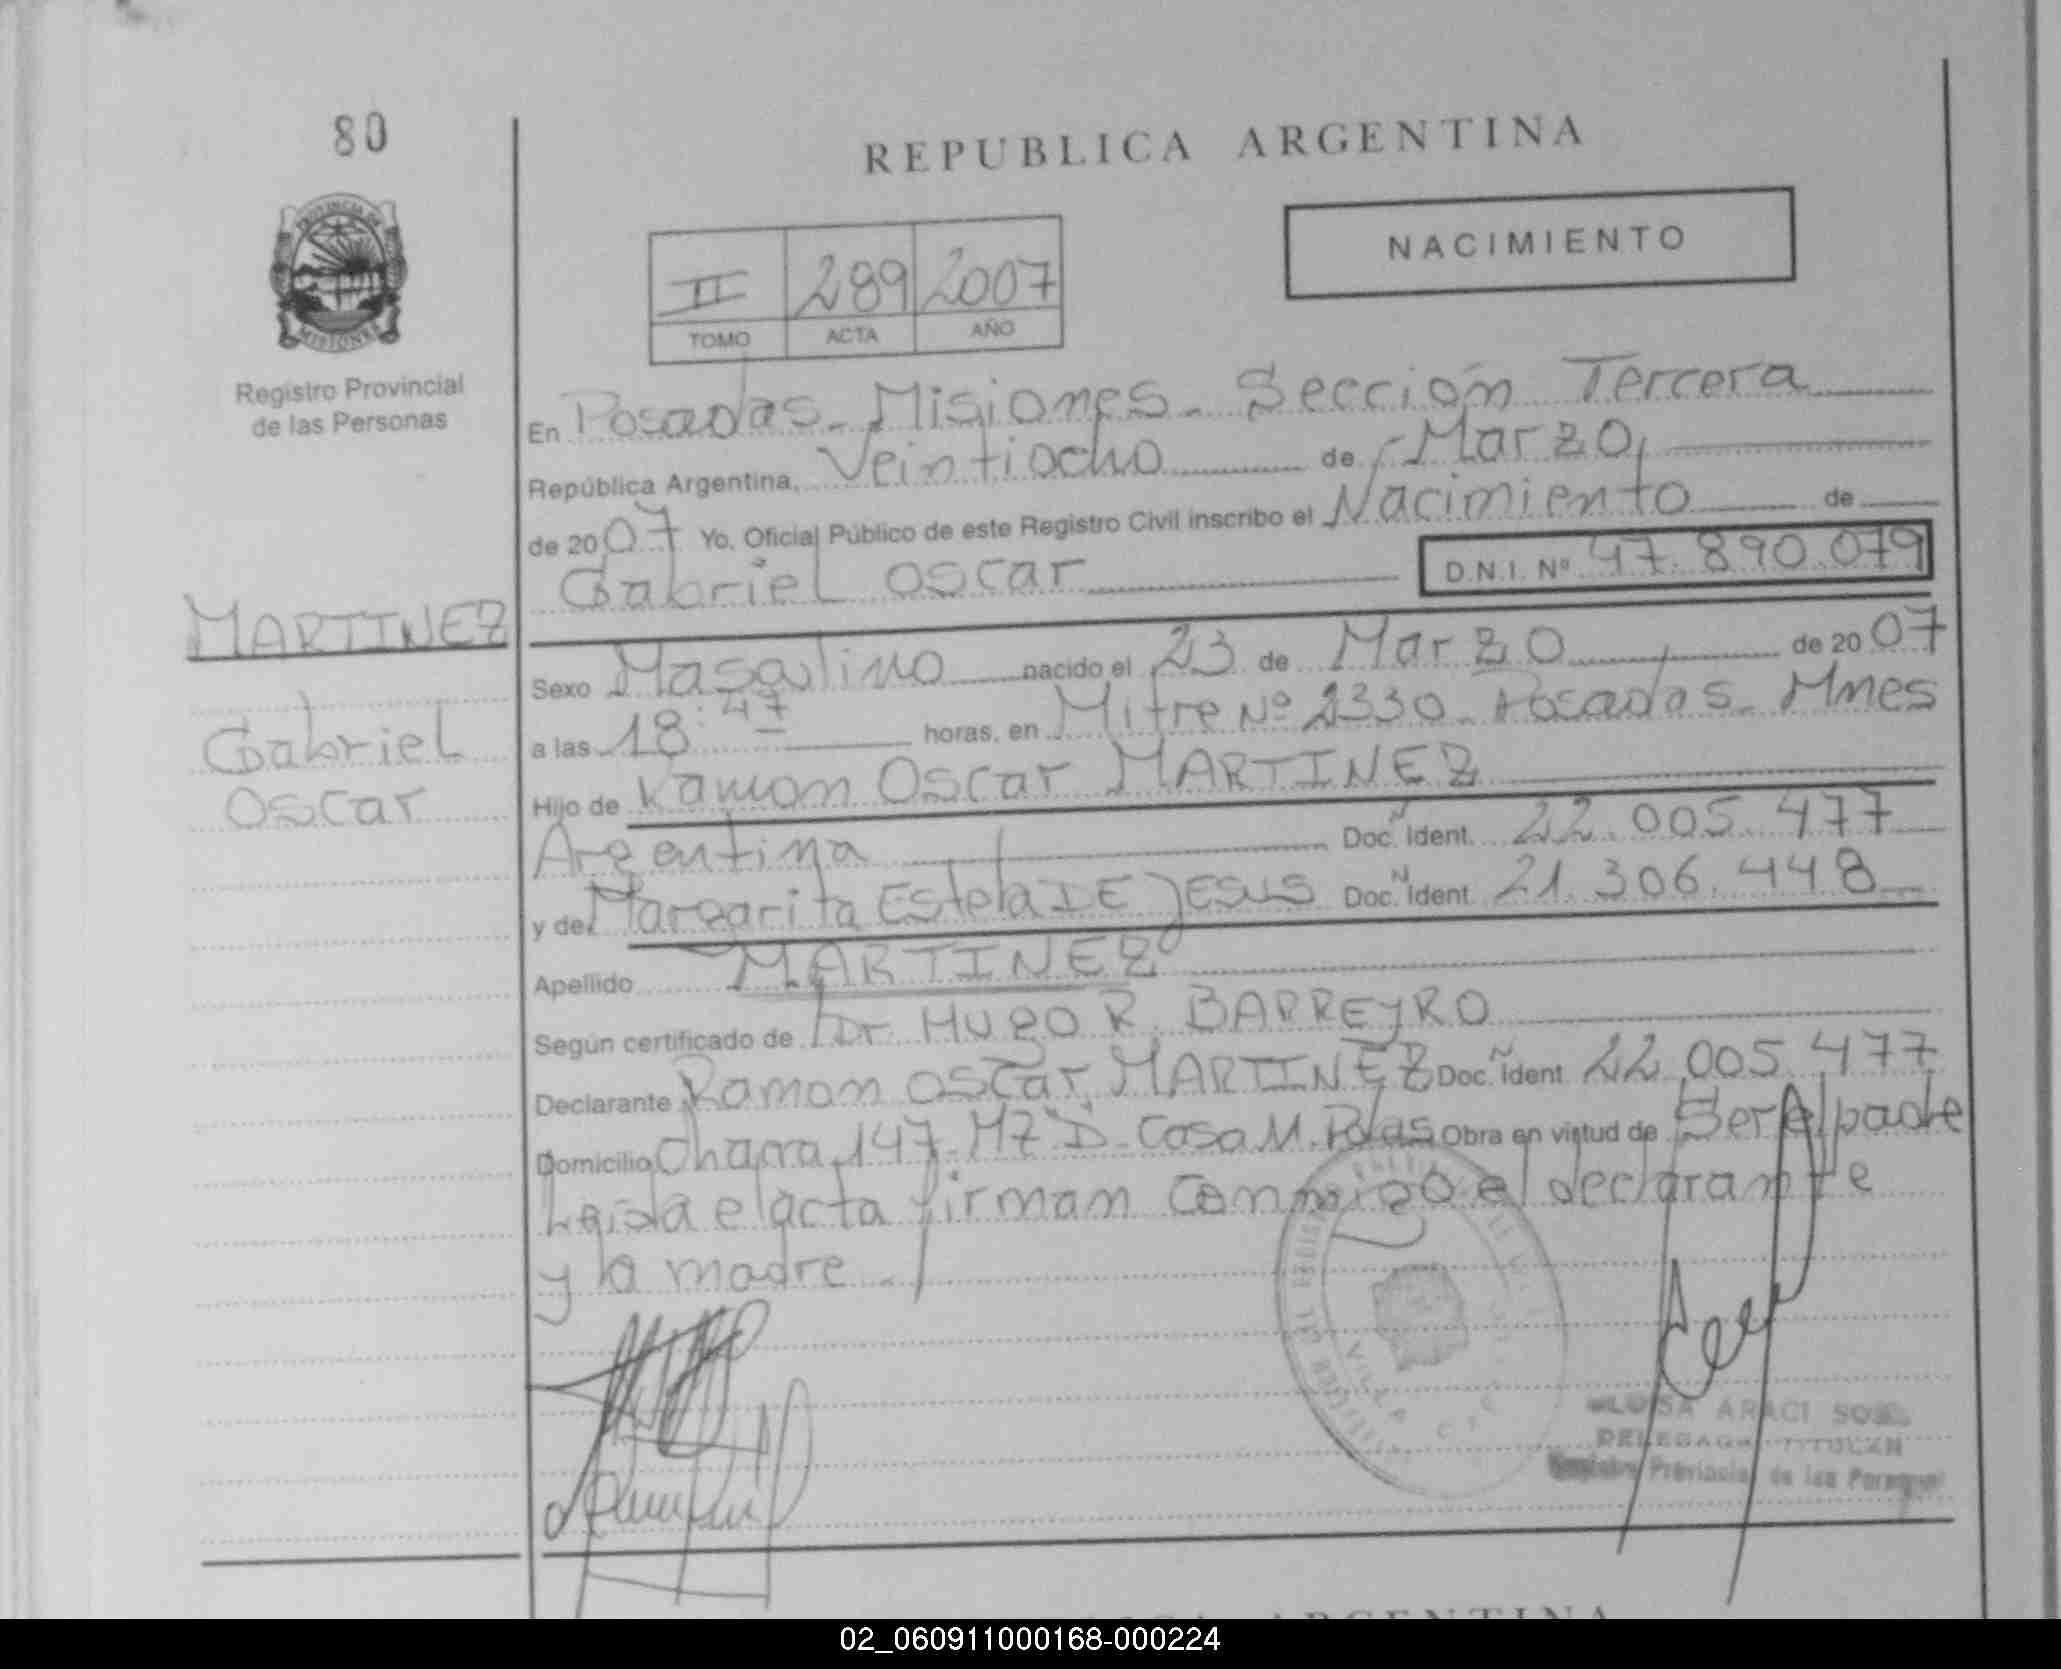 80
REPUBLICA ARGENTINA
PROVINCIA DE
MISIONES
Registro Provincial
de las Personas
NACIMIENTO
II 289 2007
TOMO ACTA AÑO
En Posadas - Misiones - Sección Tercera
República Argentina, Veintiocho de Marzo,
de 2007 Yo, Oficial Público de este Registro Civil inscribo el Nacimiento de
Gabriel Oscar D.N.I. Nº 47.890.079
MARTINEZ
Gabriel
Oscar
Sexo Masculino nacido el 23 de Marzo de 2007
a las 18:47 horas, en Mitre Nº 2330 - Posadas - Mnes
Hijo de Ramon Oscar MARTINEZ
Argentina Doc. Ñ Ident. 22.005.477
y de Margarita Estela DE JESUS Doc. N Ident. 21.306.448
Apellido MARTINEZ
Según certificado de Dr. Hugo R. BARREYRO
Declarante Ramon Oscar MARTINEZ Doc. Ñ Ident. 22.005.477
Domicilio Chacra 147 - MZ "D" - Casa 11. Pdas Obra en virtud de Ser el padre
Leida el acta firman conmigo el declarante
y la madre.
VILLA
ARACI
DELEGADA TITULAR
Registro Provincial de las Personas
ARGENTINA
02_060911000168-000224